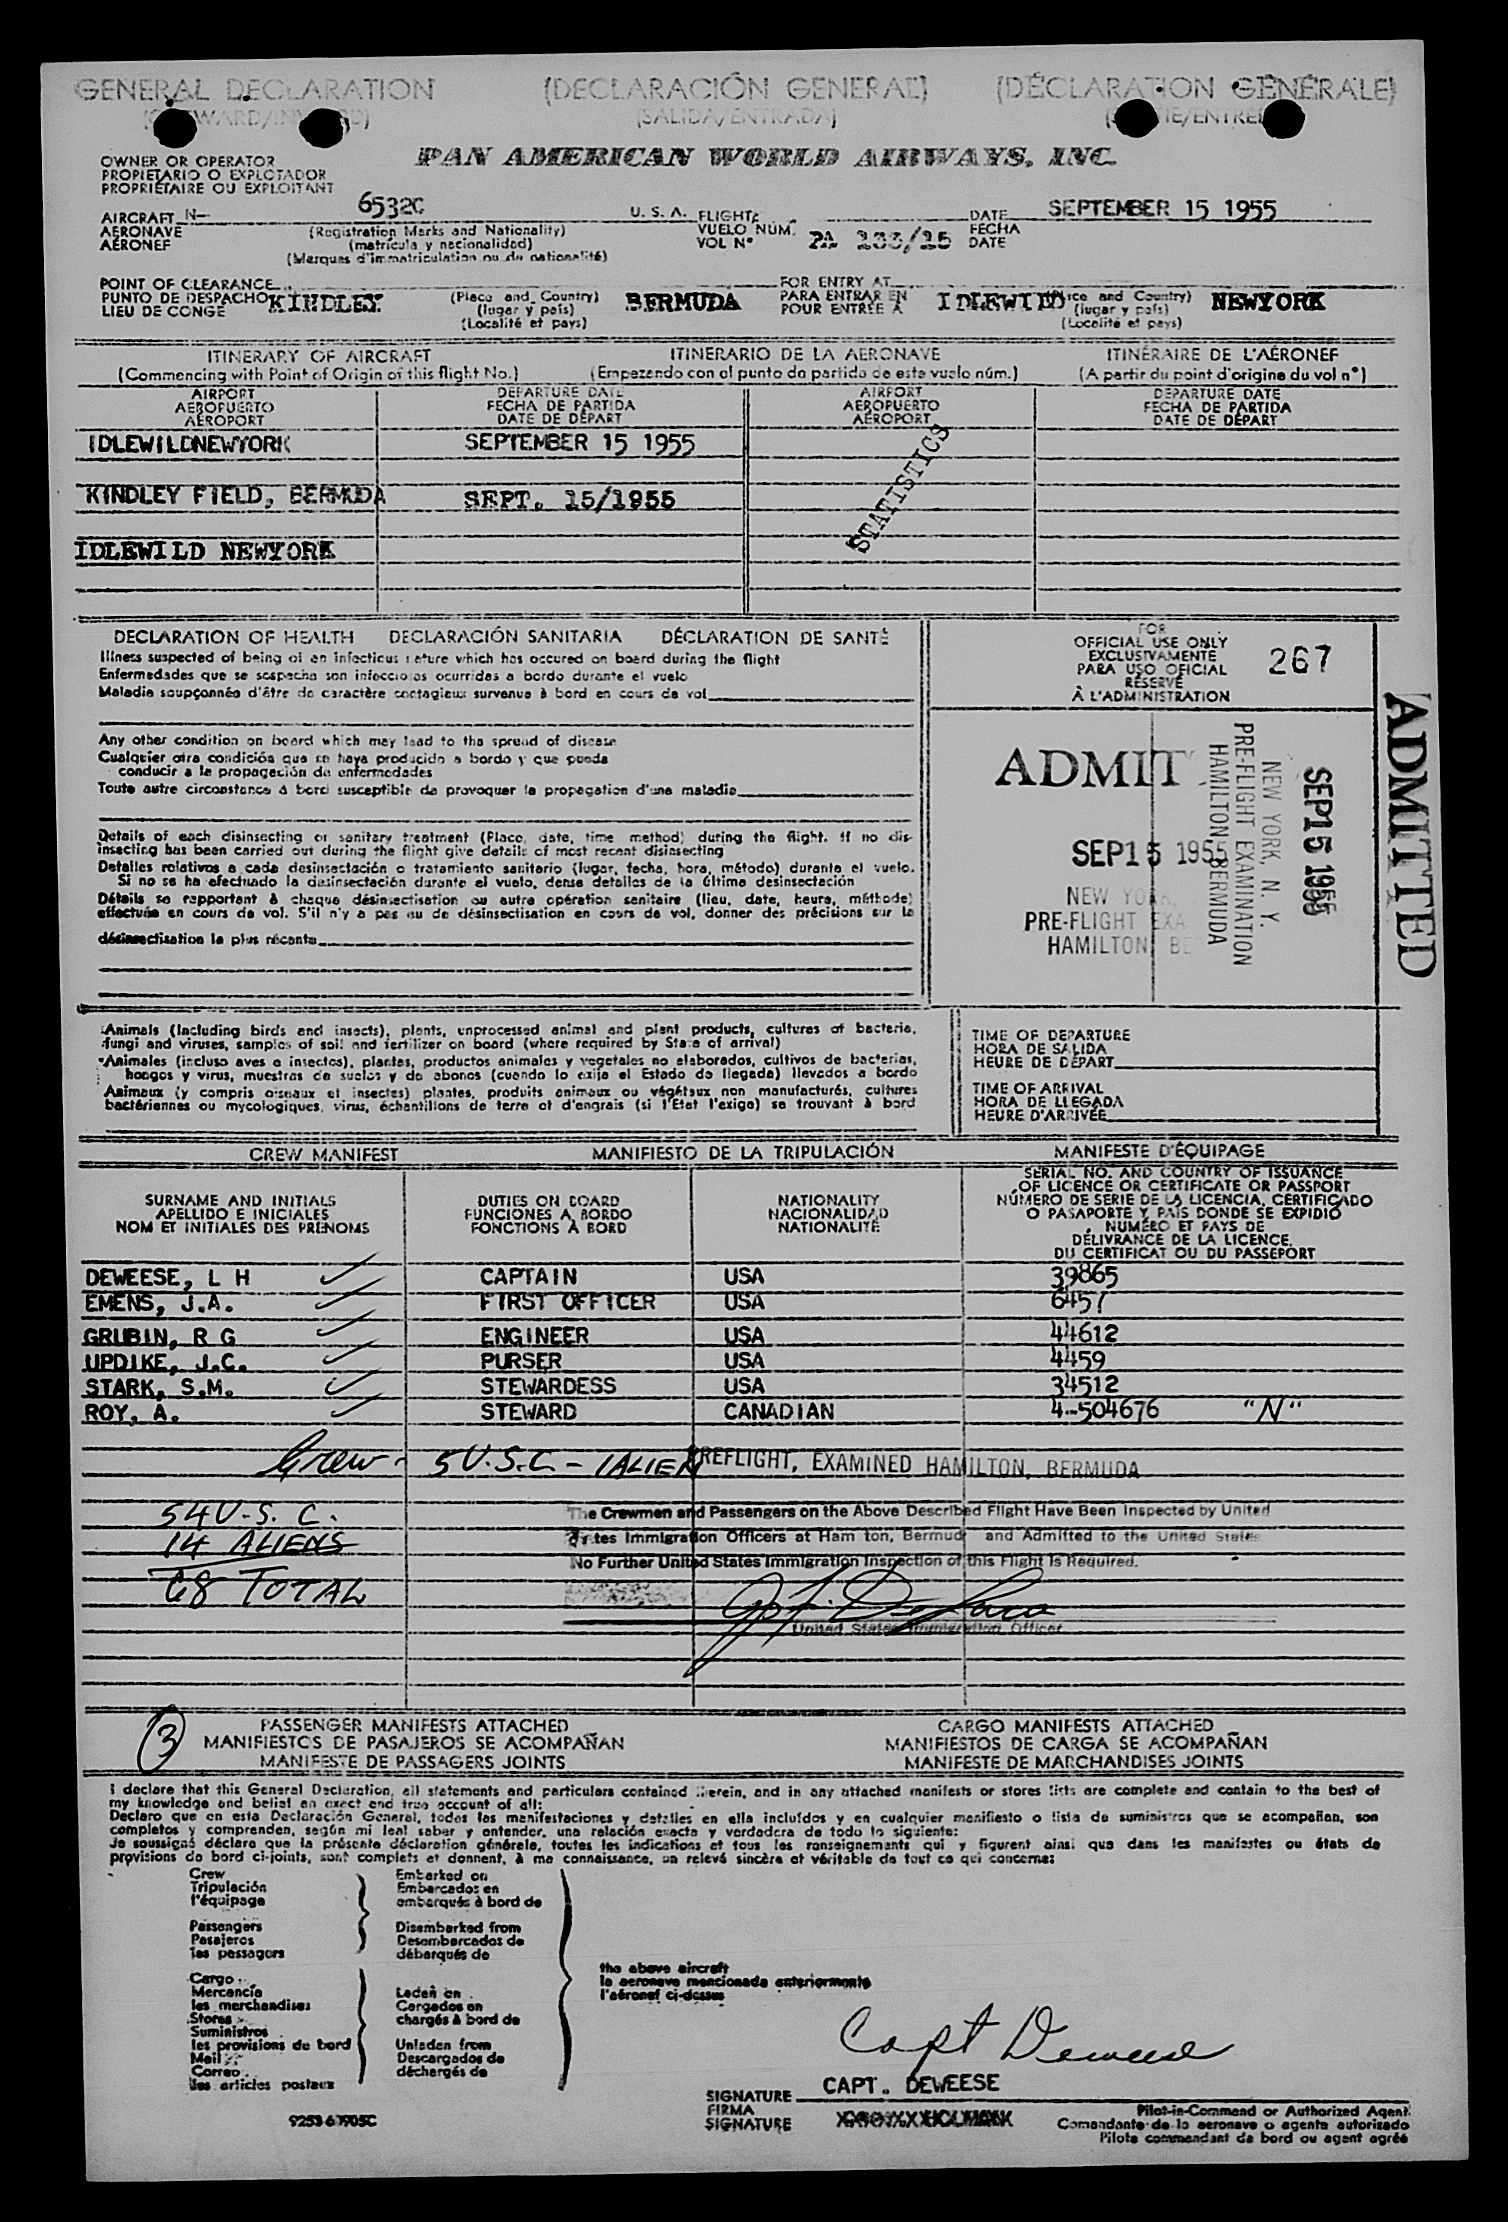 GENERAL DECLARATION (DECLARACIÓN GENERAL) (DÉCLARATION GÉNÉRALE)
(SALIDA/ENTRADA)
OWNER OR OPERATOR
PROPIETARIO O EXPLOTADOR
PROPRIÉTAIRE OU EXPLOITANT
PAN AMERICAN WORLD AIRWAYS, INC.
AIRCRAFT N- 6532C U. S. A. FLIGHT DATE SEPTEMBER 15 1955
AERONAVE (Registration Marks and Nationality) VUELO NUM. FECHA
AÉRONEF (matrícula y nacionalidad) VOL Nº PA 133/15 DATE
(Marques d'immatriculation ou de nationalité)
POINT OF CLEARANCE FOR ENTRY AT
PUNTO DE DESPACHO KINDLEY (Place and Country) BERMUDA PARA ENTRAR EN IDLEWILD and Country) NEWYORK
LIEU DE CONGÉ (lugar y país) POUR ENTRÉE À (lugar y país)
(Localité et pays) (Localité et pays)
ITINERARY OF AIRCRAFT ITINERARIO DE LA AERONAVE ITINÉRAIRE DE L'AÉRONEF
(Commencing with Point of Origin of this flight No.) (Empezando con el punto de partida de este vuelo núm.) (A partir du point d'origine du vol nº)
AIRPORT DEPARTURE DATE AIRPORT DEPARTURE DATE
AEROPUERTO FECHA DE PARTIDA AEROPUERTO FECHA DE PARTIDA
AÉROPORT DATE DE DÉPART AÉROPORT DATE DE DÉPART
IDLEWILDNEWYORK SEPTEMBER 15 1955
STATISTICS
KINDLEY FIELD, BERMUDA SEPT. 15/1955
IDLEWILD NEWYORK
DECLARATION OF HEALTH DECLARACIÓN SANITARIA DÉCLARATION DE SANTÉ
Illness suspected of being of an infectious nature which has occured on board during the flight
Enfermedades que se sospecha son infecciosas ocurridas a bordo durante el vuelo
Maladie soupçonnée d'être de caractère contagieux survenue à bord en cours de vol
Any other condition on board which may lead to the spread of disease
Cualquier otra condición que se haya producido a bordo y que pueda
conducir a la propagación de enfermedades
Toute autre circonstance à bord susceptible de provoquer la propagation d'une maladie
Details of each disinsecting or sanitary treatment (Place, date, time method) during the flight. If no dis-
insecting has been carried out during the flight give details of most recent disinsecting
Detalles relativos a cada desinsectación o tratamiento sanitario (lugar, fecha, hora, método) durante el vuelo.
Si no se ha efectuado la desinsectación durante el vuelo, dense detalles de la última desinsectación
Détails se rapportant à chaque désinsectisation ou autre opération sanitaire (lieu, date, heure, méthode)
effectuée en cours de vol. S'il n'y a pas eu de désinsectisation en cours de vol, donner des précisions sur la
désinsectisation la plus récente
FOR
OFFICIAL USE ONLY
EXCLUSIVAMENTE
PARA USO OFICIAL
RÉSERVÉ
À L'ADMINISTRATION
267
ADMIT
SEP 15 1955
NEW YORK,
PRE-FLIGHT EXA
HAMILTON, BE
SEP 15 1955
NEW YORK, N. Y.
PRE-FLIGHT EXAMINATION
HAMILTON BERMUDA
ADMITTED
Animals (including birds and insects), plants, unprocessed animal and plant products, cultures of bacteria,
fungi and viruses, samples of soil and fertilizer on board (where required by State of arrival)
Animales (incluso aves e insectos), plantas, productos animales y vegetales no elaborados, cultivos de bacterias,
hongos y virus, muestras de suelos y de abonos (cuando lo exija el Estado de llegada) llevados a bordo
Animaux (y compris oiseaux et insectes) plantes, produits animaux ou végétaux non manufacturés, cultures
bactériennes ou mycologiques, virus, échantillons de terre et d'engrais (si l'État l'exige) se trouvant à bord
TIME OF DEPARTURE
HORA DE SALIDA
HEURE DE DÉPART
TIME OF ARRIVAL
HORA DE LLEGADA
HEURE D'ARRIVÉE
CREW MANIFEST MANIFIESTO DE LA TRIPULACIÓN MANIFESTE D'ÉQUIPAGE
SURNAME AND INITIALS
APELLIDO E INICIALES
NOM ET INITIALES DES PRÉNOMS
DUTIES ON BOARD
FUNCIONES A BORDO
FONCTIONS À BORD
NATIONALITY
NACIONALIDAD
NATIONALITÉ
SERIAL NO. AND COUNTRY OF ISSUANCE
OF LICENCE OR CERTIFICATE OR PASSPORT
NÚMERO DE SERIE DE LA LICENCIA, CERTIFICADO
O PASAPORTE Y PAÍS DONDE SE EXPIDIÓ
NUMÉRO ET PAYS DE
DÉLIVRANCE DE LA LICENCE,
DU CERTIFICAT OU DU PASSEPORT
DEWEESE, L H CAPTAIN USA 39865
EMENS, J.A. FIRST OFFICER USA 6457
GRUBIN, R G ENGINEER USA 44612
UPDIKE, J.C. PURSER USA 4459
STARK, S.M. STEWARDESS USA 34512
ROY, A. STEWARD CANADIAN 4-504676 "N"
Crew - 5 U.S.C. - 1 ALIEN PREFLIGHT, EXAMINED HAMILTON, BERMUDA
54 U.S.C.
14 ALIENS
68 TOTAL
The Crewmen and Passengers on the Above Described Flight Have Been Inspected by United
States Immigration Officers at Ham ton, Bermud and Admitted to the United States
No Further United States Immigration Inspection of this Flight Is Required.
United States Immigration Officer
3
PASSENGER MANIFESTS ATTACHED CARGO MANIFESTS ATTACHED
MANIFIESTOS DE PASAJEROS SE ACOMPAÑAN MANIFIESTOS DE CARGA SE ACOMPAÑAN
MANIFESTE DE PASSAGERS JOINTS MANIFESTE DE MARCHANDISES JOINTS
I declare that this General Declaration, all statements and particulars contained herein, and in any attached manifests or stores lists are complete and contain to the best of
my knowledge and belief an exact and true account of all:
Declaro que en esta Declaración General, todas las manifestaciones y detalles en ella incluídos y en cualquier manifiesto o lista de suministros que se acompañan, son
completos y comprenden, según mi leal saber y entender, una relación exacta y verdadera de todo lo siguiente:
Je soussigné déclare que la présente déclaration générale, toutes les indications et tous les renseignements qui y figurent ainsi que dans les manifestes ou états de
provisions de bord ci-joints, sont complets et donnent, à ma connaissance, un relevé sincère et véritable de tout ce qui concerne:
Crew
Tripulación
l'équipage
Passengers
Pasajeros
les passagers
Cargo
Mercancía
les merchandises
Stores
Suministros
les provisions de bord
Mail
Correo
les articles postaux
Embarked on
Embarcados en
embarqués à bord de
Disembarked from
Desembarcados de
débarqués de
Laden on
Cargados en
chargés à bord de
Unladen from
Descargados de
déchargés de
the above aircraft
la aeronave mencionada anteriormente
l'aéronef ci-dessus
Capt Deweese
SIGNATURE CAPT. DEWEESE
FIRMA
SIGNATURE
Pilot-in-Command or Authorized Agent
Comandante de la aeronave o agente autorizado
Pilote commandant de bord ou agent agréé